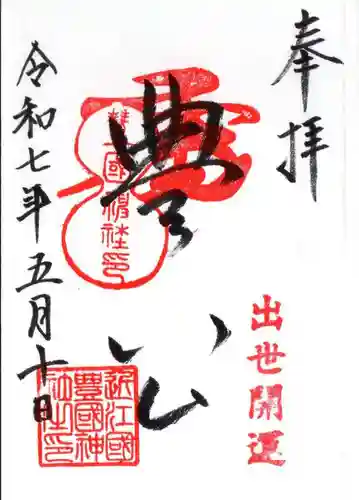 奉拝
出世開運
豊公
豊國神社印
近江國
豊國神
社之印
令和七年五月十日